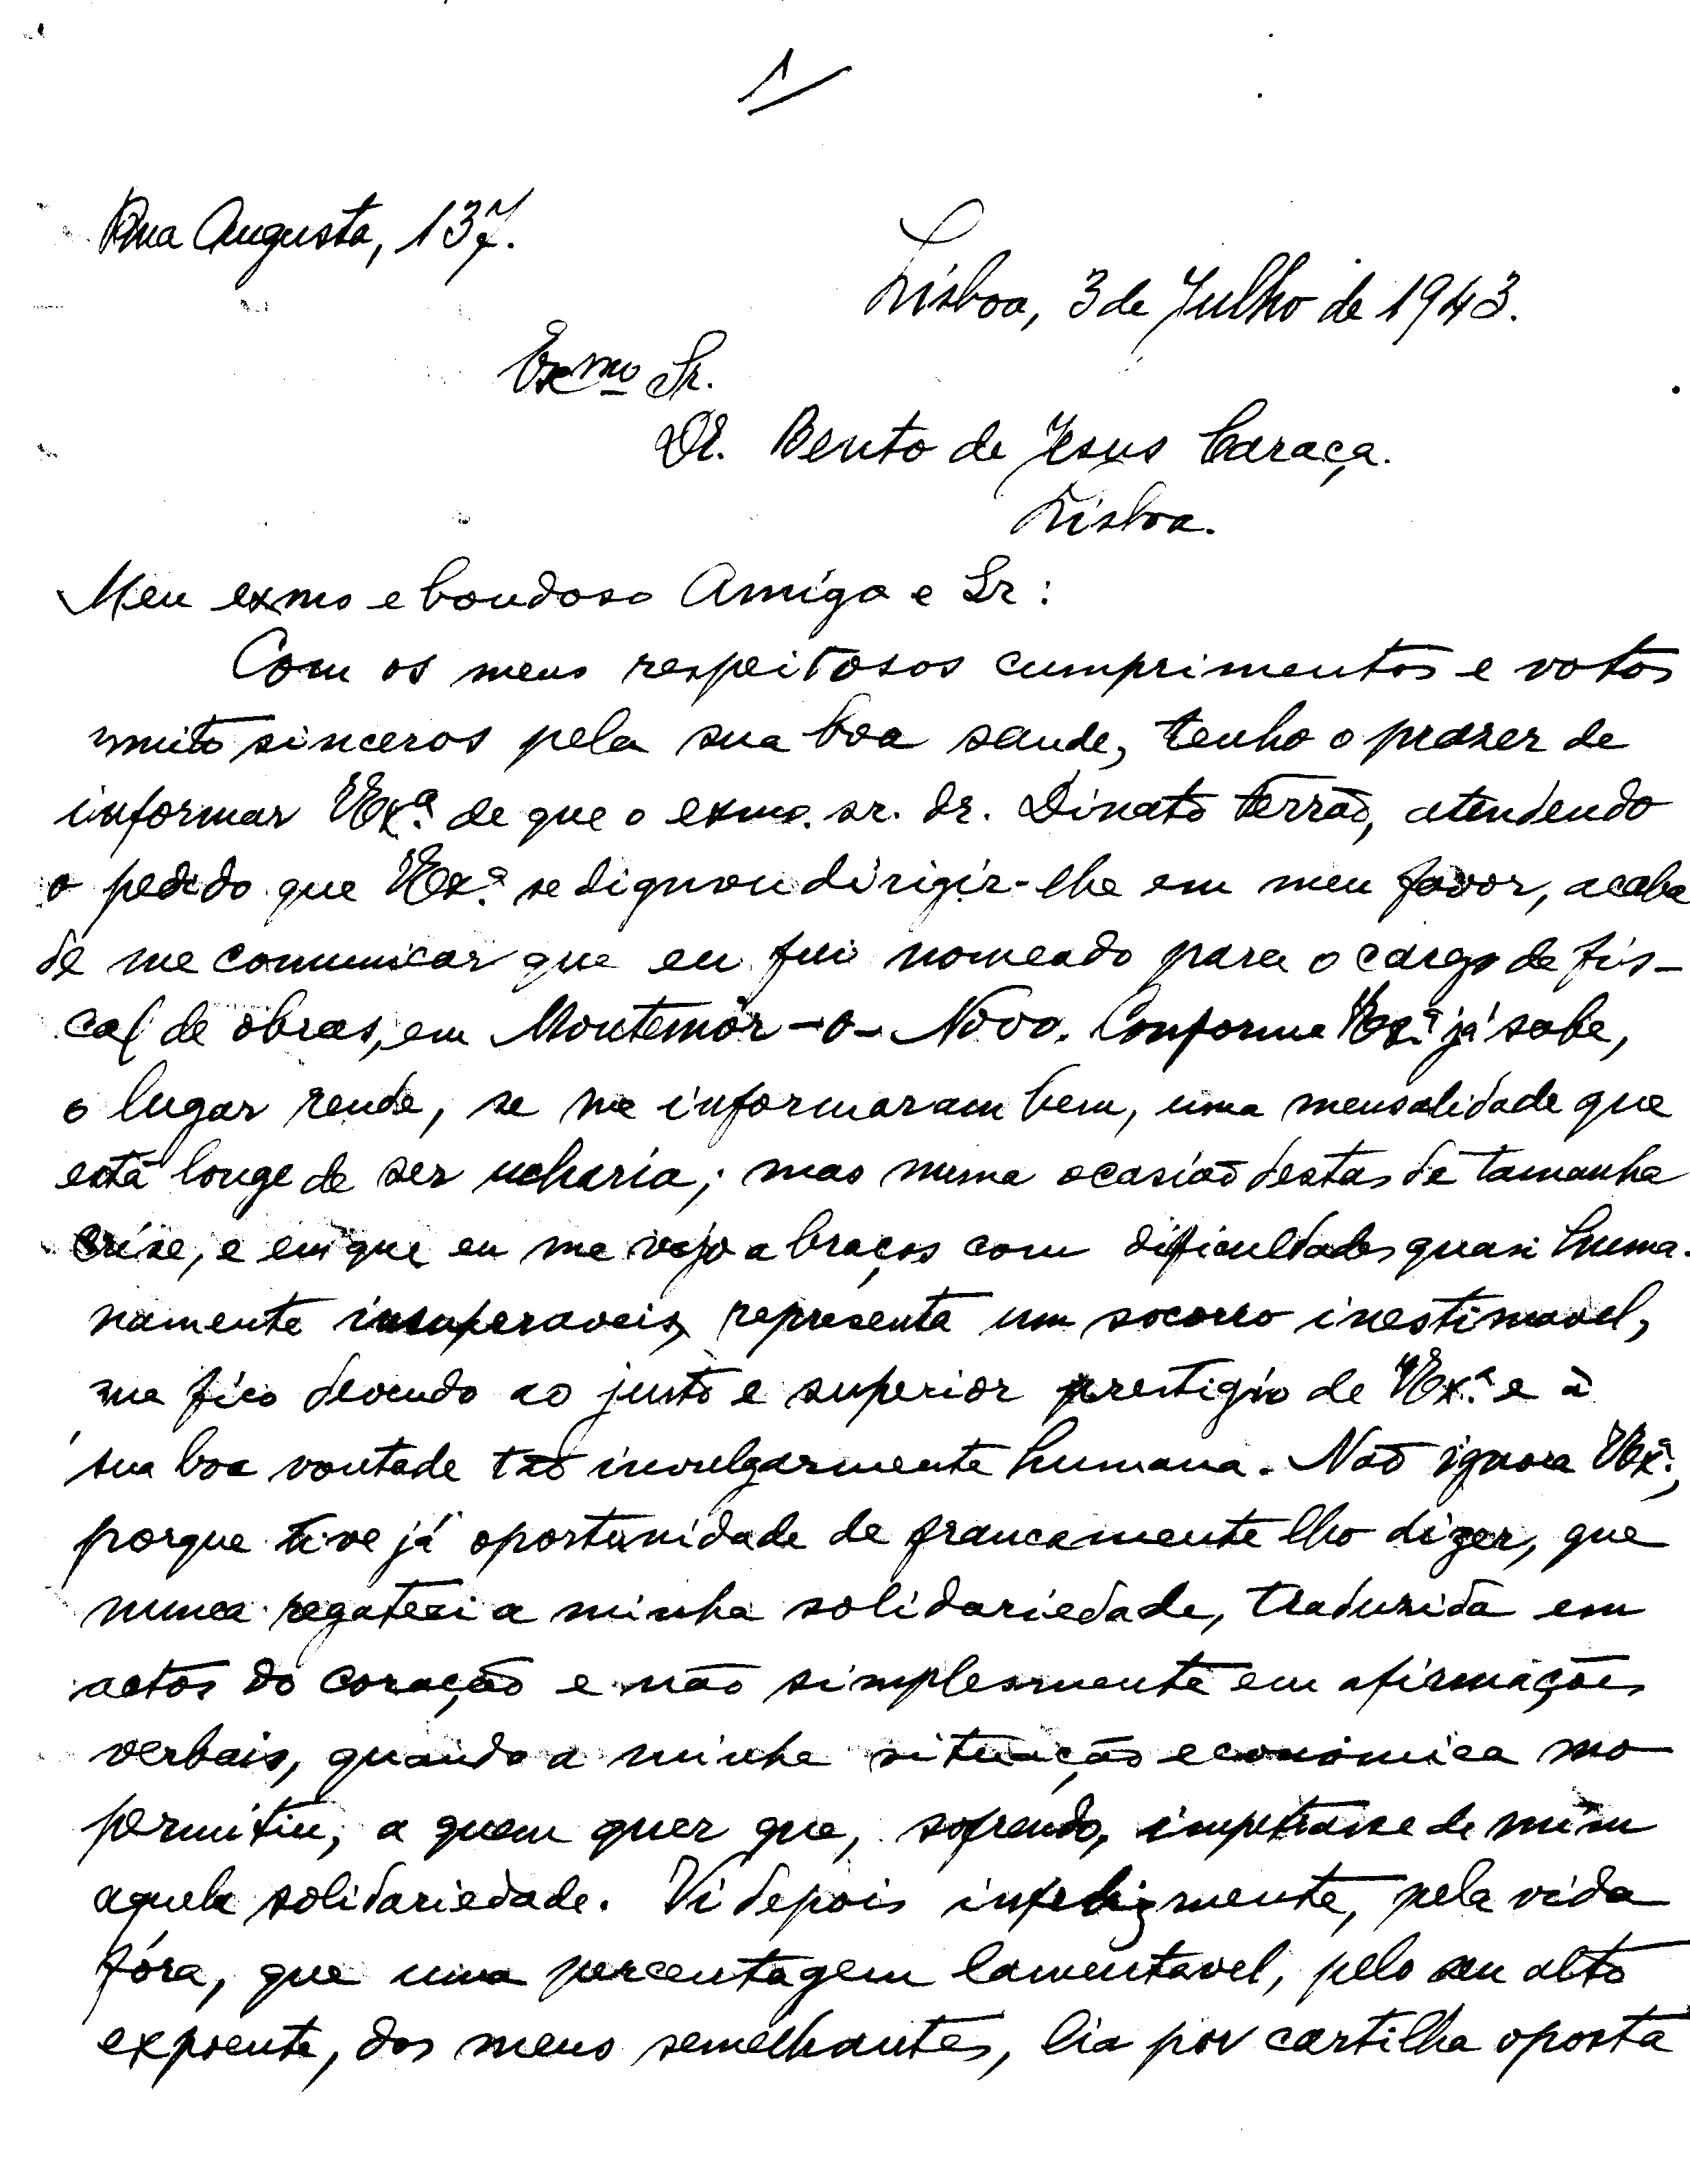 1/
Rua Augusta, 137.
Lisboa, 3 de Julho de 1943.
Exmo Sr.
Dr. Bento de Jesus Caraça.
Lisboa.
Meu exmo e bondoso Amigo e Sr:
Com os meus respeitosos cumprimentos e votos
muito sinceros pela sua boa saude, tenho o prazer de
informar VExª de que o exmo. sr. dr. Dinato Terrão, atendendo
o pedido que VExª se dignou dirigir-lhe em meu favor, acaba
de me comunicar que eu fui nomeado para o cargo de fis-
cal de obras, em Montemór-o-Novo. Conforme VExª já sabe,
o lugar rende, se me informaram bem, uma mensalidade que
está longe de ser ucharia; mas numa ocasião destas de tamanha
crise, e em que eu me vejo a braços com dificuldades quasi huma-
namente insuperaveis, representa um socorro inestimavel,
que fico devendo ao justo e superior prestigio de VExª e à
sua boa vontade tão invulgarmente humana. Não ignora VExª,
porque tive já oportunidade de francamente lho dizer, que
nunca regateei a minha solidariedade, traduzida em
actos do coração e não simplesmente em afirmações
verbais, quando a minha situação económica mo
permitiu, a quem quer que, sofrendo, impetrasse de mim
aquela solidariedade. Vi depois infelizmente, pela vida
fóra, que uma percentagem lamentavel, pelo seu alto
expoente, dos meus semelhantes, lia por cartilha oposta